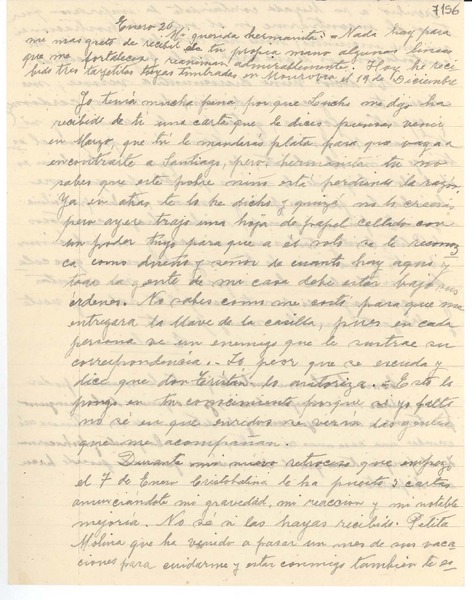 7156
Enero 20
Mi querida hermanita: - Nada hay para
me mas grato de recibir de tu propia mano algunas lineas
que me fortalecen y reaniman admirablemente. Hoy he reci
bido tres tarjetitas tuyas timbradas en Monrovia el 19 de Diciembre
Yo tenía mucha pena porque Lucho me dijo ha
recibido de ti una carta que le dices piensas venir
en Marzo, que tú le mandarás plata para que vaya a
encontrarte a Santiago, pero, hermanita tu no
sabes que este pobre niño está perdiendo la razón.
Ya en otras te lo he dicho y quizá no lo creas,
pero ayer trajo una hoja de papel sellado con
un poder tuyo para que a él solo se le reconoz
ca como dueño y señor de cuanto hay aquí y
toda la gente de mi casa debe estar bajo sus
ordenes. No sabes como me costó para que me
entregara la llave de la casilla, pues en cada
persona ve un enemigo que le sustrae su
correspondencia. Lo peor que se escuda y
dice que don Tristán lo autoriza. - Esto lo
pongo en tu conocimiento porque si yo falto
no sé en que enredos se verán los gentes
que me acompañan.
Durante mi nuevo retroceso que empezó
el 7 de Enero Cristobalina le ha puesto 3 cartas
anunciándote mi gravedad, mi reaccion y mi notable
mejoria. No sé si las hayas recibido. Petita
Molina que he venido a pasar un mes de sus vaca
ciones para cuidarme y estar conmigo también te es